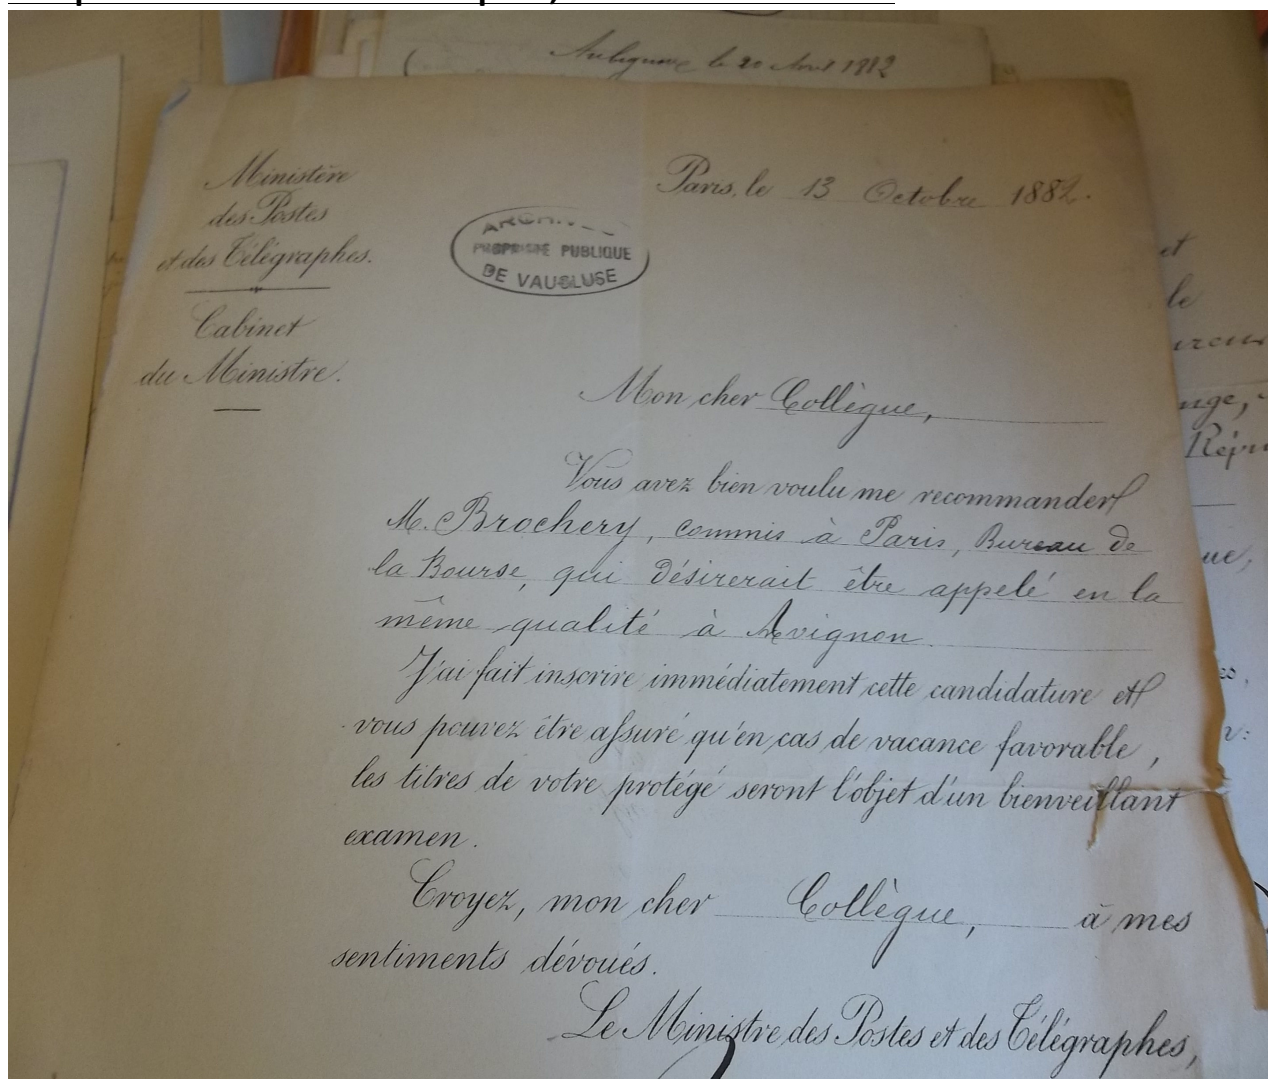 le 20 Avril 1882
Ministère
des Postes
et des Télégraphes.
Cabinet
du Ministre.
Paris, le 13 Octobre 1882.
ARCHIVES
PROPRIÉTÉ PUBLIQUE
DE VAUCLUSE
Mon cher Collègue,
Vous avez bien voulu me recommander
M. Brochery, commis à Paris, Bureau de
la Bourse, qui désirerait être appelé en la
même qualité à Avignon
J'ai fait inscrire immédiatement cette candidature et
vous pouvez être assuré qu'en cas de vacance favorable,
les titres de votre protégé seront l'objet d'un bienveillant
examen.
Croyez, mon cher Collègue, à mes
sentiments dévoués.
Le Ministre des Postes et des Télégraphes,
et
le